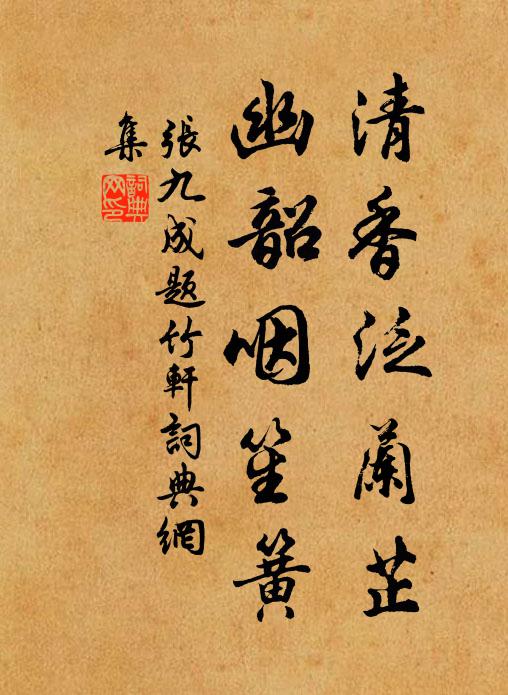 清香泛蘭芷
幽韶咽笙簧
張九成題竹軒詞典網
集
詞典網印